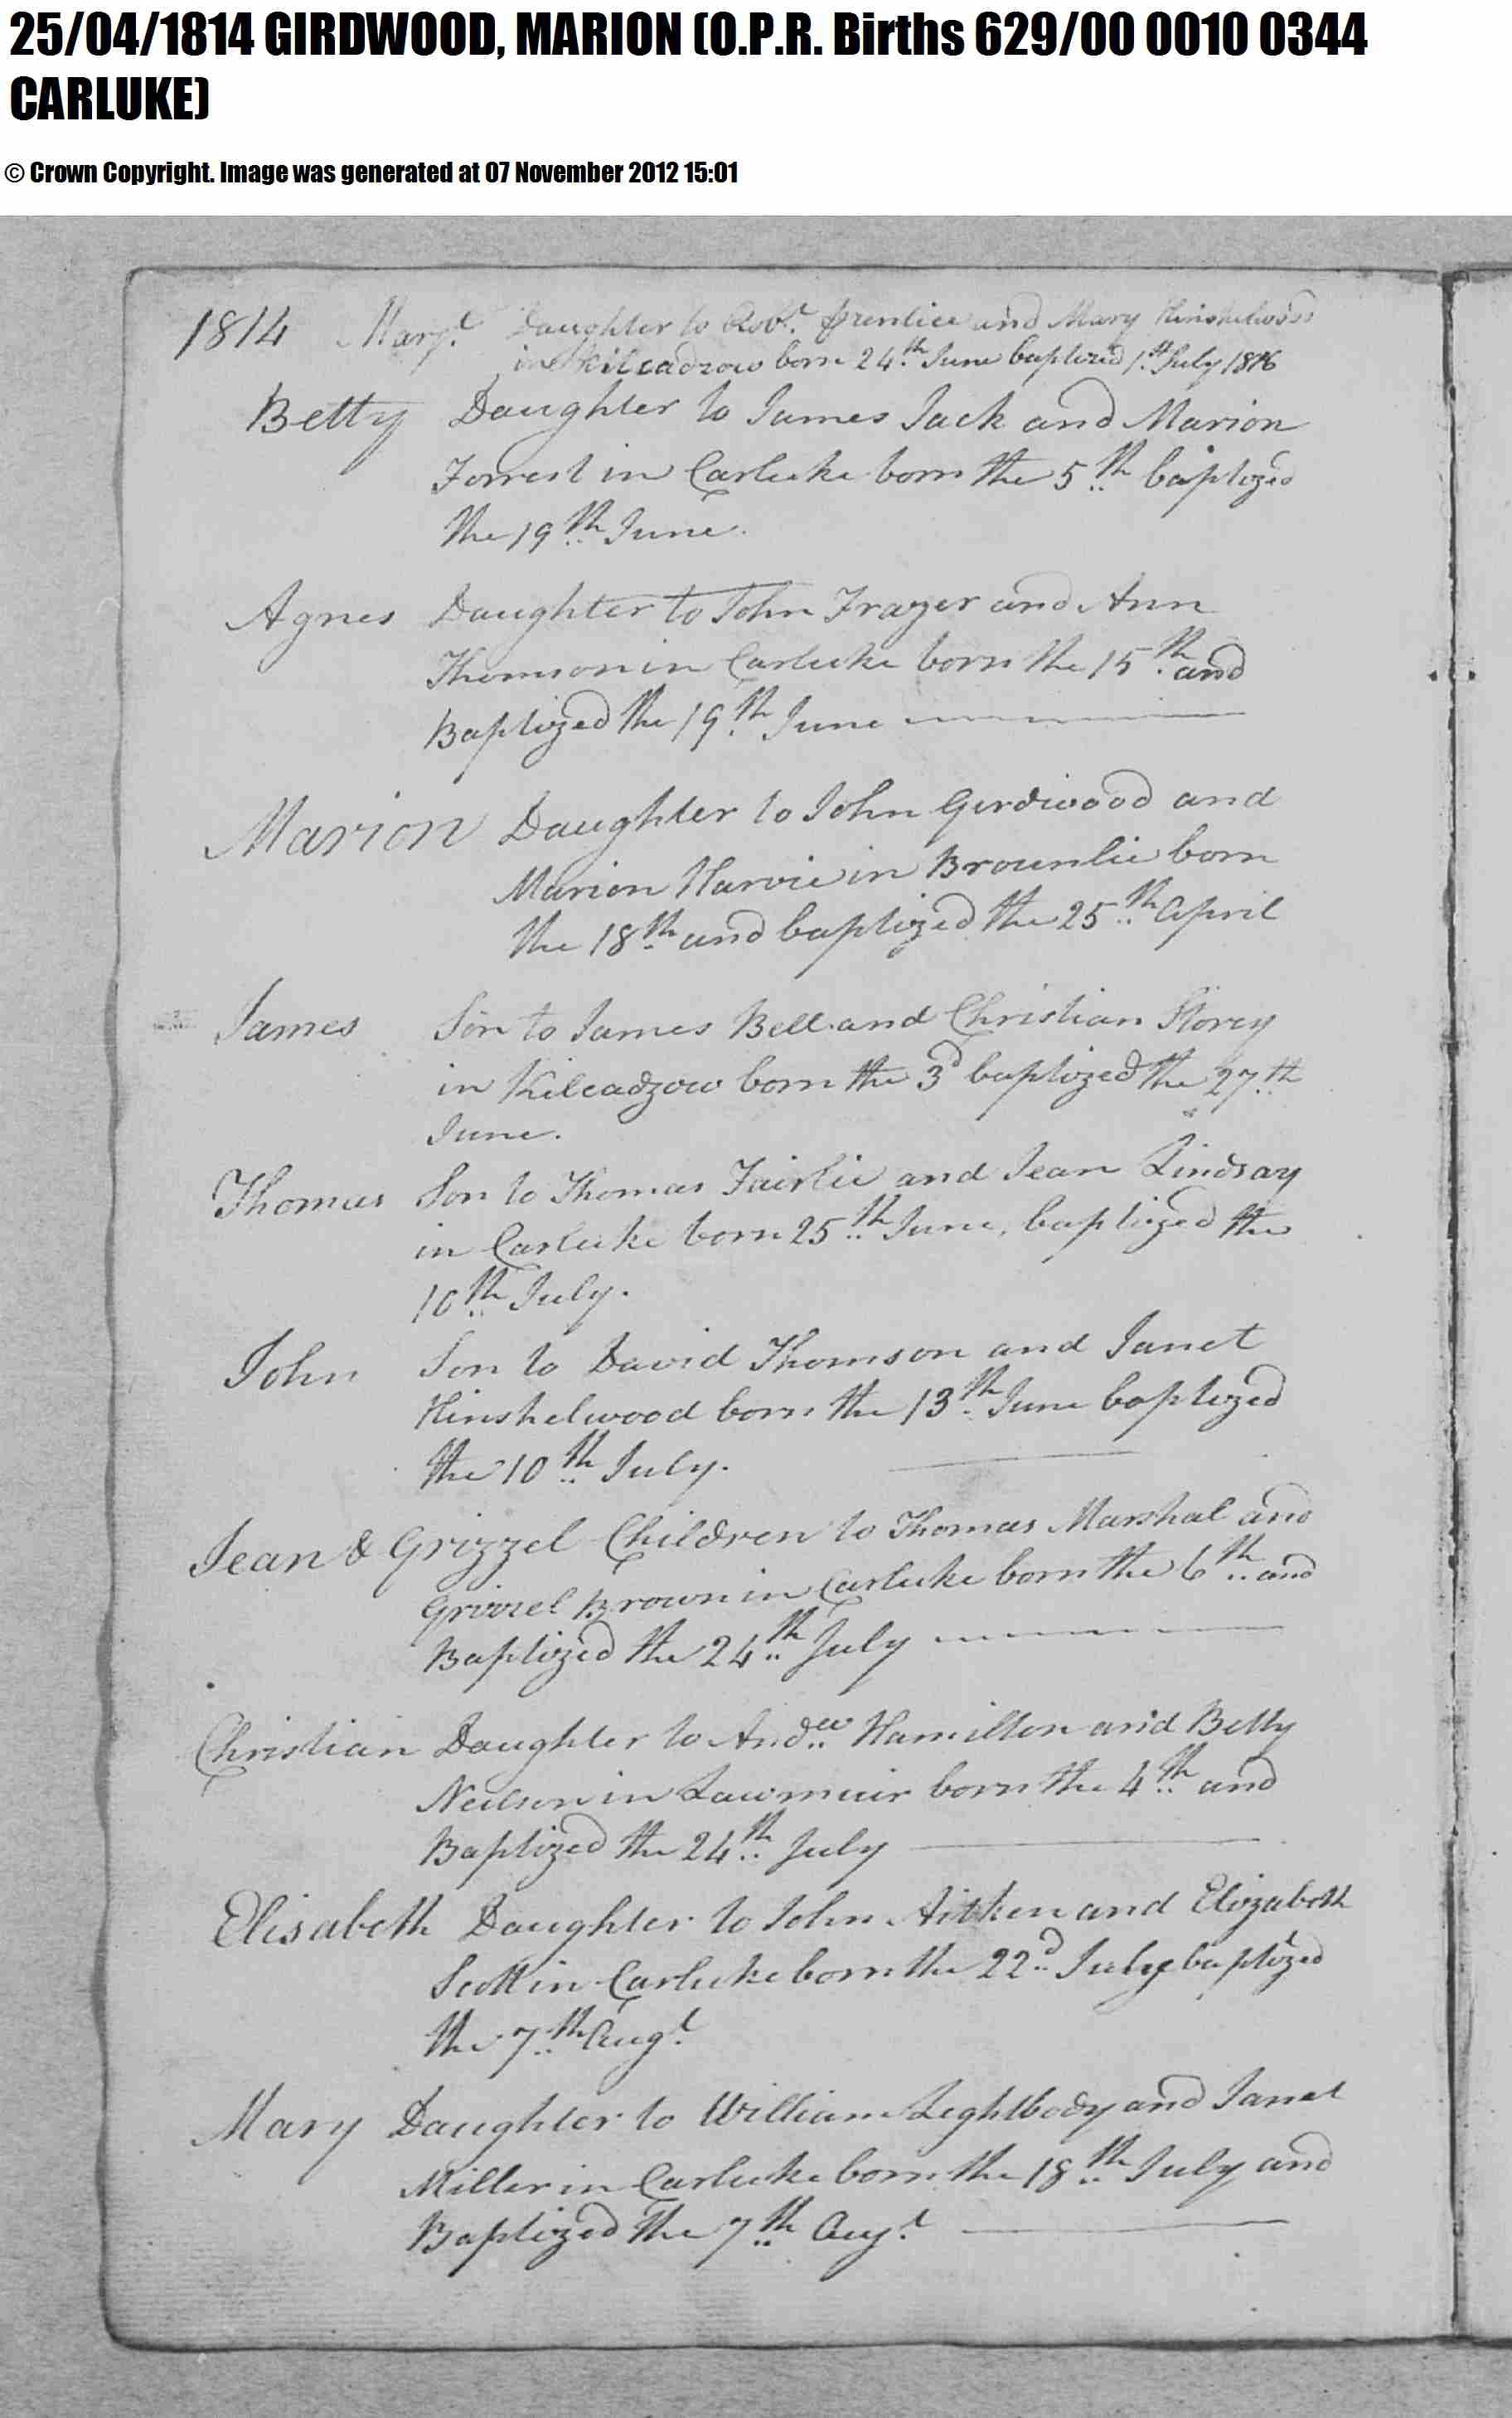 25/04/1814 GIRDWOOD, MARION (O.P.R. Births 629/00 0010 0344
CARLUKE)
© Crown Copyright. Image was generated at 07 November 2012 15:01
1814 Margt Daughter to Robt. Prentice and Mary Hinshelwood
in Kilcadzow born 24th June baptized 1st July 1816
Betty Daughter to James Jack and Marion
Forrest in Carluke born the 5th baptized
the 19th June.
Agnes Daughter to John Frazer and Ann
Thomson in Carluke born the 15th and
Baptized the 19th June
Marion Daughter to John Girdwood and
Marion Harvie in Brownlie born
the 18th and baptized the 25th April
James Son to James Bell and Christian Storey
in Kilcadzow born the 3d baptized the 27th
June.
Thomas Son to Thomas Fairlie and Jean Lindsay
in Carluke born 25th June, baptized the
10th July.
John Son to David Thomson and Janet
Hinshelwood born the 13th June baptized
the 10th July.
Jean & Grizzel Children to Thomas Marshal and
Grizzel Brown in Carluke born the 6th and
Baptized the 24th July
Christian Daughter to Andw Hamilton and Betty
Neilson in Lawmuir born the 4th and
Baptized the 24th July
Elisabeth Daughter to John Aitken and Elizabeth
Scott in Carluke born the 22d July baptized
the 7th Augt
Mary Daughter to William Leghtbody and Janet
Miller in Carluke born the 18th July and
Baptized the 7th Augt